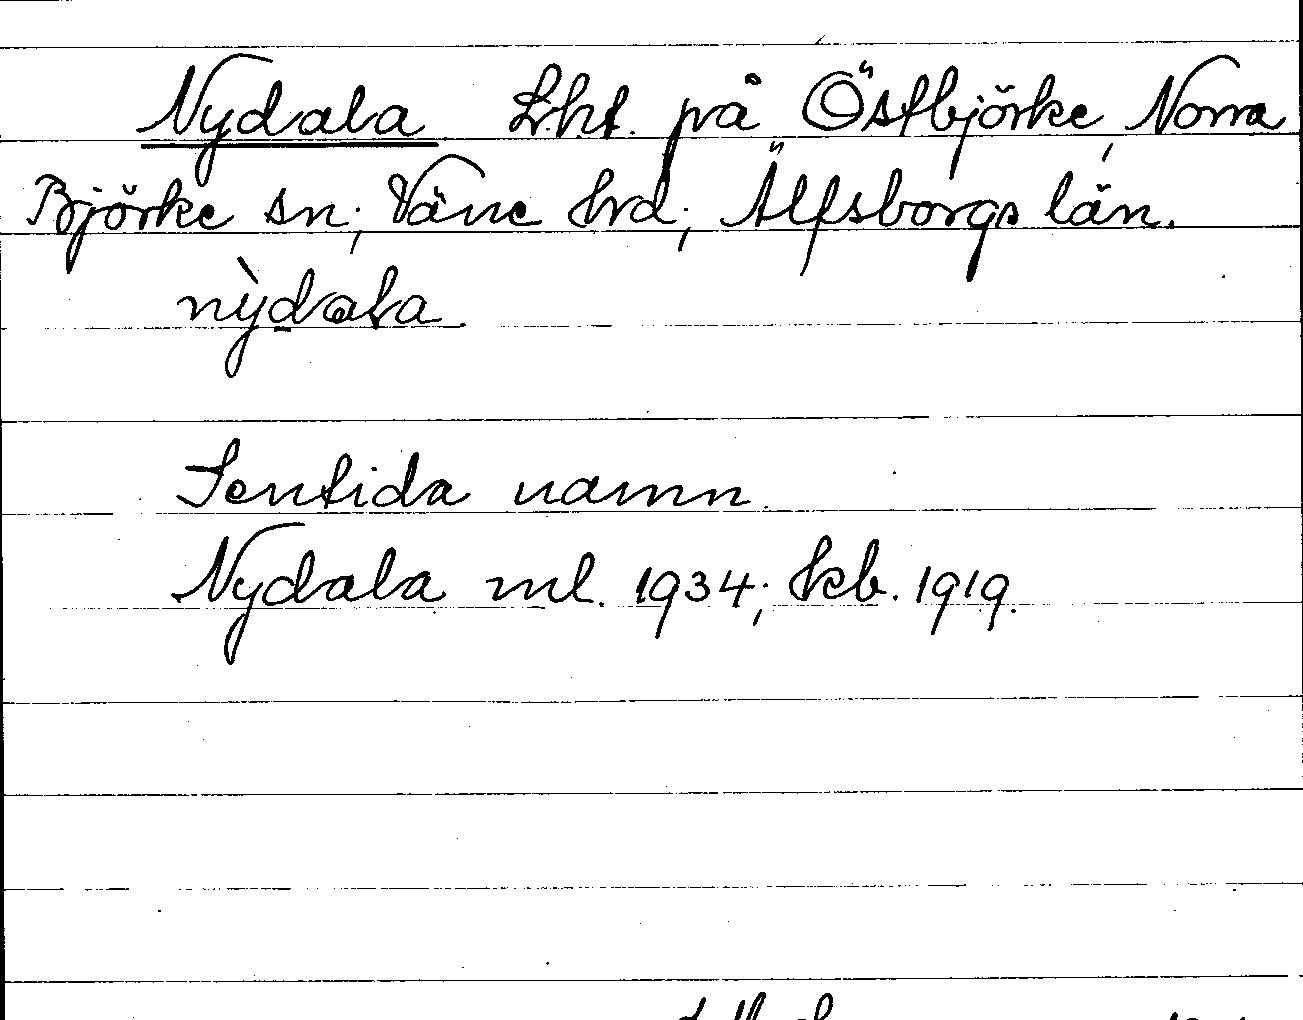 Nydala Lht. på Östbjörke, Norra
Björke sn; Väne hrd; Älfsborgs län.
nỳdala
Sentida namn.
Nydala ml. 1934; kb. 1919.